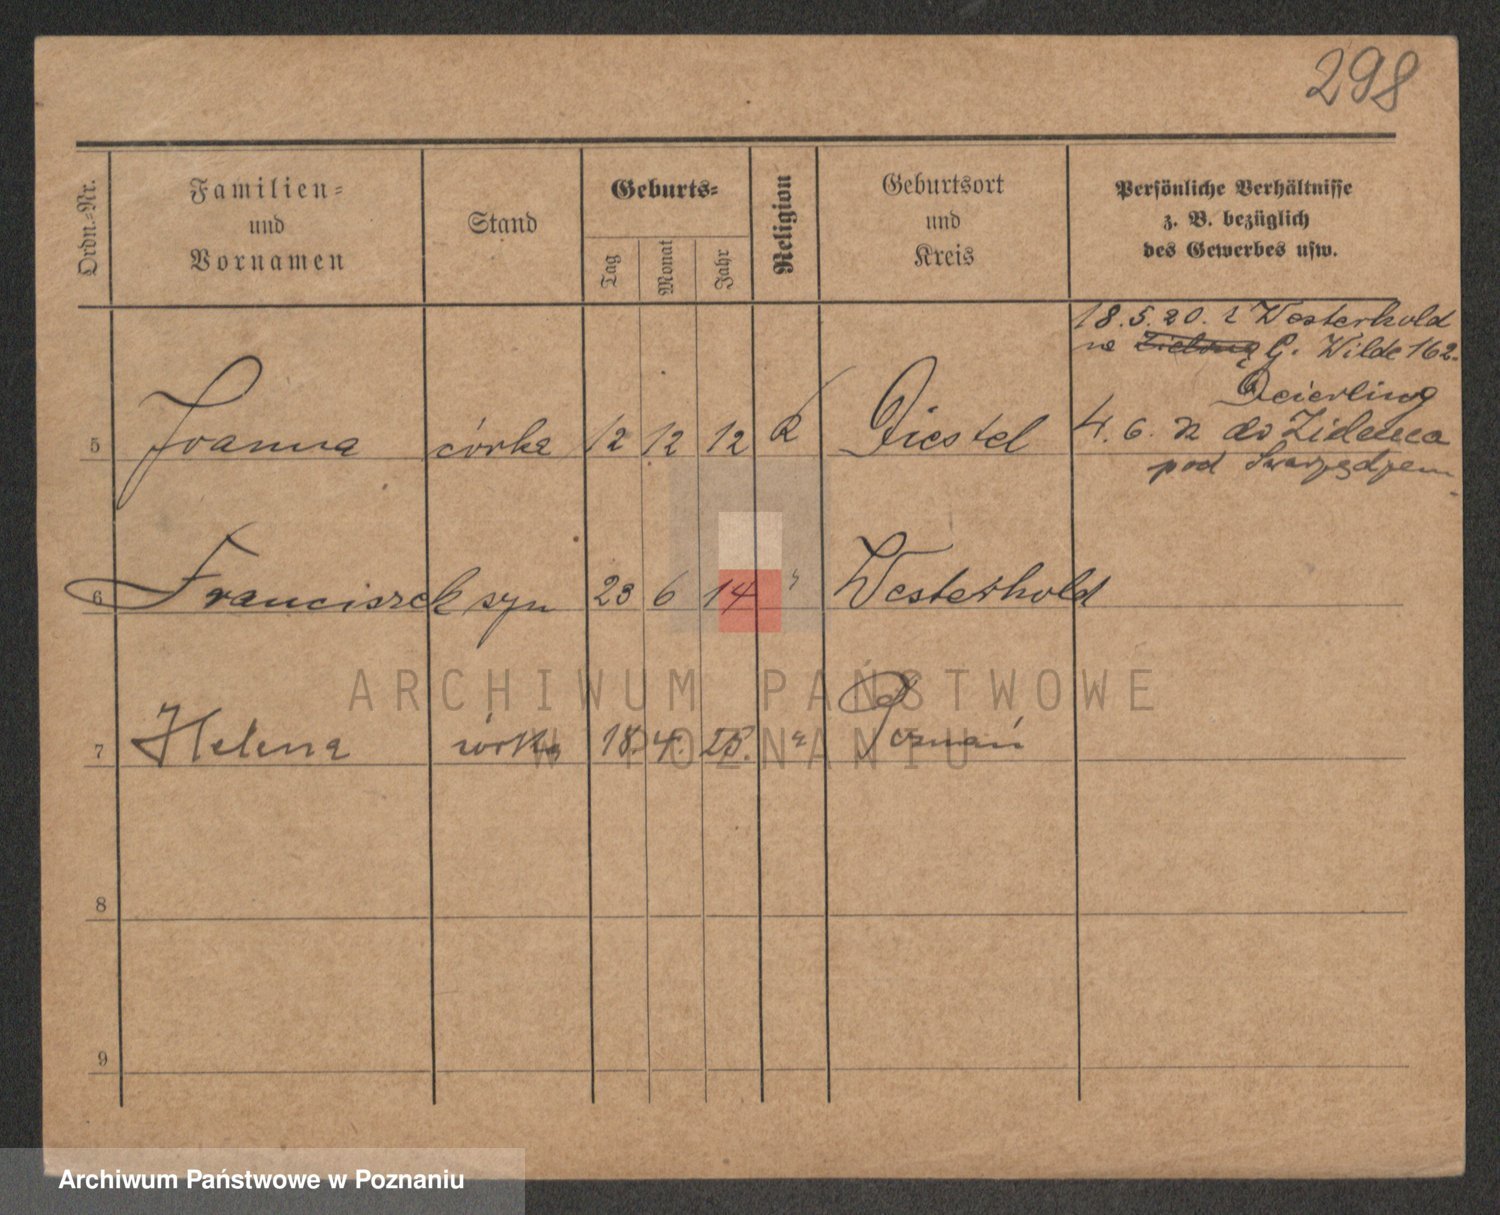 298
Ordn.-Nr.
Familien-
und
Vornamen
Stand
Geburts-
Tag
Monat
Jahr
Religion
Geburtsort
und
Kreis
Persönliche Verhältnisse
z. B. bezüglich
des Gewerbes usw.
18.5.20. z Westerhold
na G. Wilde 162.
Deierling
5 Joanna córka 12 12 12 k Diestel 4. 6. do
pod Swarzędzem
6 Franciszek syn 23 6 14 " Westerhold
7 Helena córka 18. 4. 25. " Poznań
8
9
ARCHIWUM PAŃSTWOWE
W POZNANIU
Archiwum Państwowe w Poznaniu